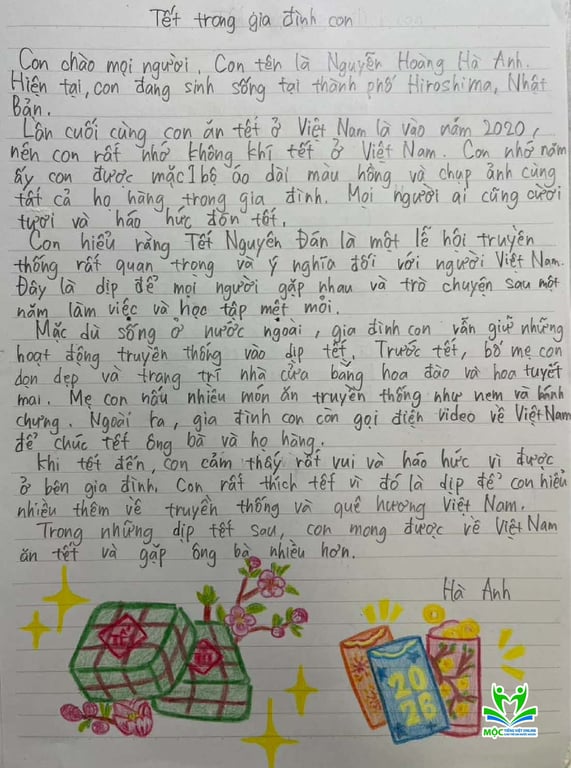 Tết trong gia đình con
Con chào mọi người, Con tên là Nguyễn Hoàng Hà Anh.
Hiện tại, con đang sinh sống tại thành phố Hiroshima, Nhật
Bản.
Lần cuối cùng con ăn tết ở Việt Nam là vào năm 2020,
nên con rất nhớ không khí tết ở Việt Nam. Con nhớ năm
ấy con được mặc 1 bộ áo dài màu hồng và chụp ảnh cùng
tất cả họ hàng trong gia đình. Mọi người ai cũng cười
tươi và háo hức đón tết.
Con hiểu rằng Tết Nguyên Đán là một lễ hội truyền
thống rất quan trọng và ý nghĩa đối với người Việt Nam.
Đây là dịp để mọi người gặp nhau và trò chuyện sau một
năm làm việc và học tập mệt mỏi.
Mặc dù sống ở nước ngoài, gia đình con vẫn giữ những
hoạt động truyền thống vào dịp tết. Trước tết, bố mẹ con
dọn dẹp và trang trí nhà cửa bằng hoa đào và hoa tuyết
mai. Mẹ con nấu nhiều món ăn truyền thống như nem và bánh
chưng. Ngoài ra, gia đình con còn gọi điện video về Việt Nam
để chúc tết ông bà và họ hàng.
Khi tết đến, con cảm thấy rất vui và háo hức vì được
ở bên gia đình. Con rất thích tết vì đó là dịp để con hiểu
nhiều thêm về truyền thống và quê hương Việt Nam.
Trong những dịp tết sau, con mong được về Việt Nam
ăn tết và gặp ông bà nhiều hơn.
Hà Anh
TẾT
20
26
MỘC
TIẾNG VIỆT ONLINE